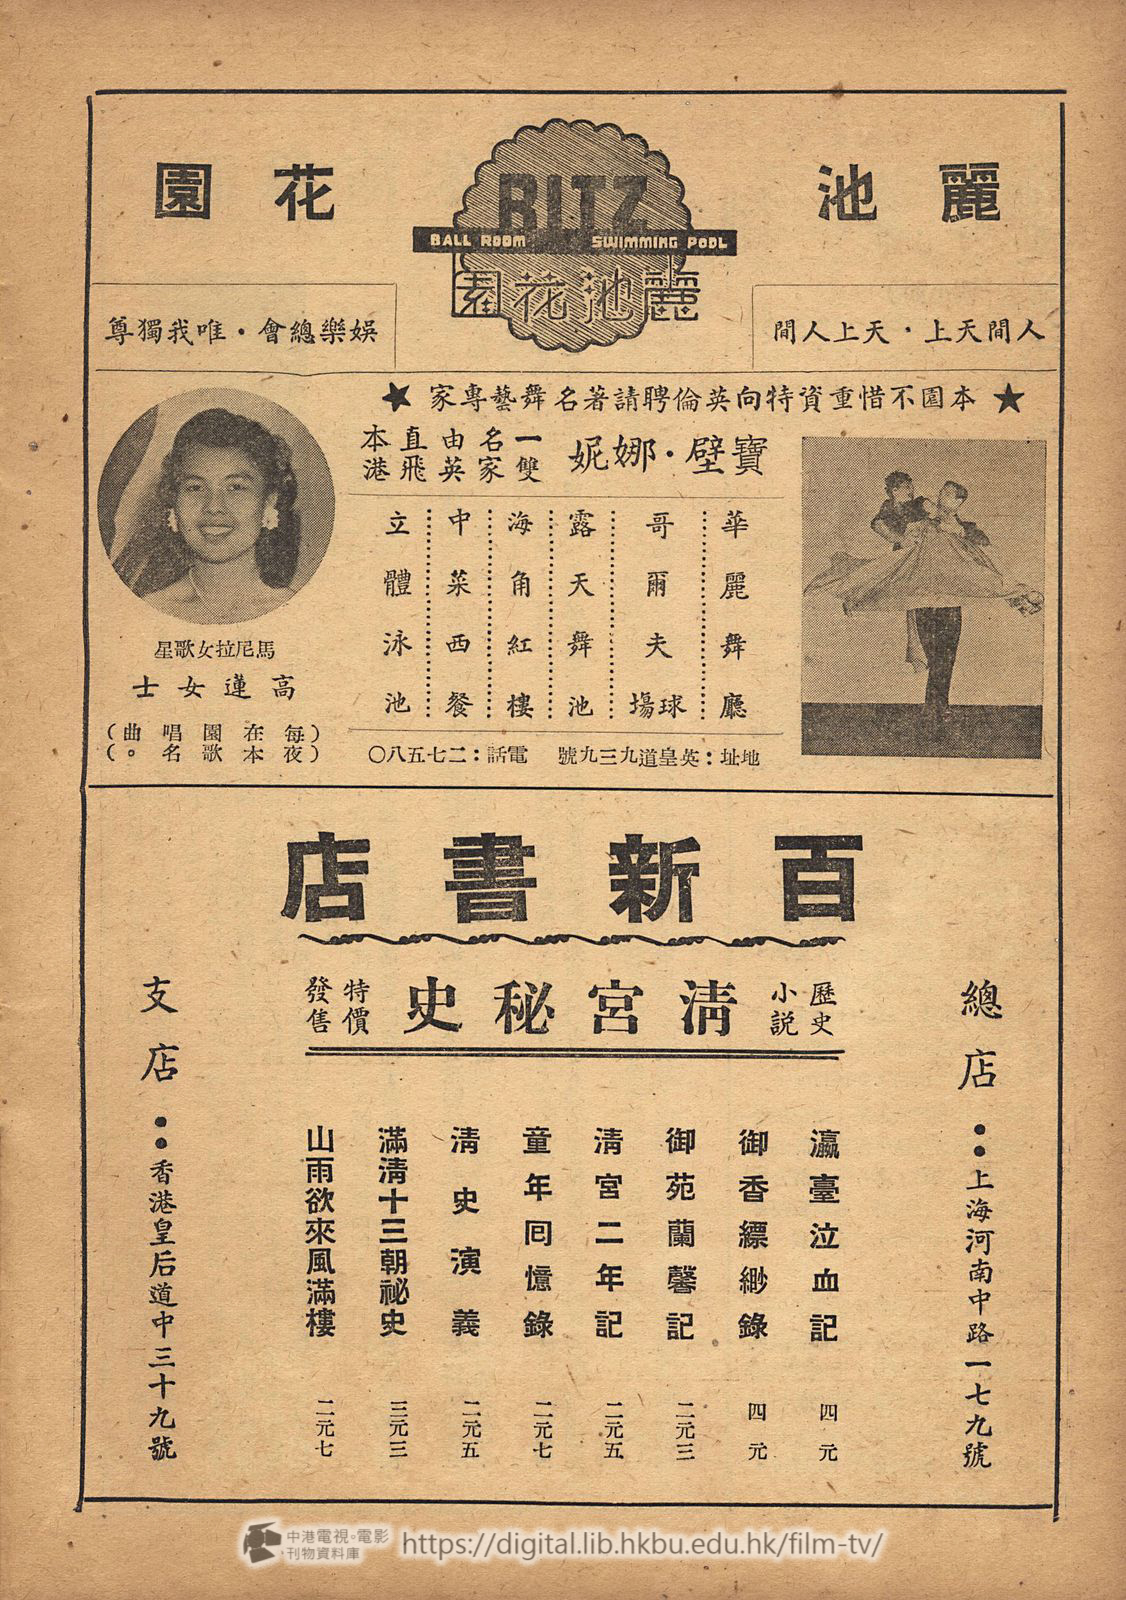 麗池
花園
RITZ
BALL ROOM SWIMMING POOL
麗池花園
人間天上・天上人間
娛樂總會・唯我獨尊
★本園不惜重資特向英倫聘請著名舞藝專家★
寶璧・娜妮
一雙名家由英直飛本港
華麗舞廳
哥爾夫球場
露天舞池
海角紅樓
中菜西餐
立體泳池
地址：英皇道九三九號 電話：二七五八〇
馬尼拉女歌星
高蓮女士
（每夜在本園歌唱名曲。）
百新書店
歷史小説
清宮秘史
特價發售
總店：上海河南中路一七九號
瀛臺泣血記 四元
御香縹緲錄 四元
御苑蘭馨記 二元三
清宮二年記 二元五
童年回憶錄 二元七
清史演義 二元五
滿清十三朝祕史 三元三
山雨欲來風滿樓 二元七
支店：香港皇后道中三十九號
中港電視・電影
刊物資料庫
https://digital.lib.hkbu.edu.hk/film-tv/